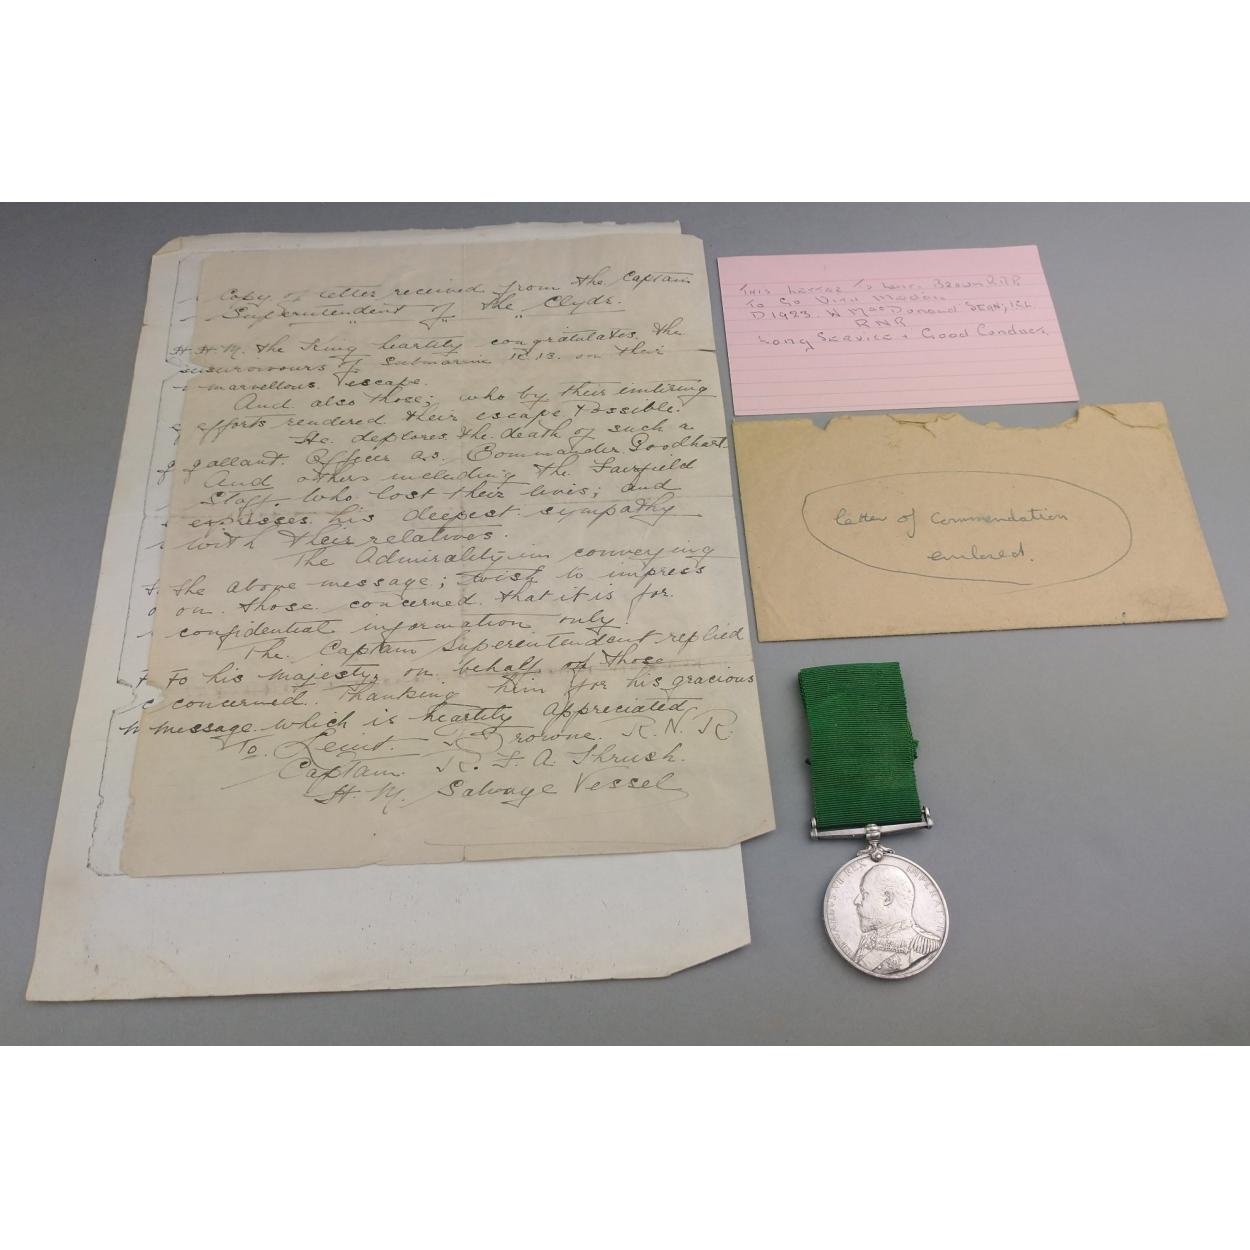 Copy of letter received from the Captain
Superintendent of the Clyde.
H. M. the King heartily congratulates the
surowours of Submarine K.13. on their
marvellous escape.
And also those; who by their untiring
efforts rendered their escape possible.
He deplores the death of such a
gallant Officer as Commander Goodhart.
And others including the Fairfield
Staff who lost their lives; and
expresses his deepest sympathy
with their relatives.
The Admirality in conveying
the above message; wish to impress
on those concerned that it is for
confidential information only.
The Captain Superintendent replied
To his majesty, on behalf of those
concerned. Thanking him for his gracious
message which is heartily appreciated
To Leiut. Browne. R.N.R.
Captain R. F. A. Thrush.
H. M. Salvage Vessel
This Letter To Leiu. Brown R.N.R
To Go With Medal
D1923. W MacDonald SEAN, 1CL
RNR
Long Service + Good Conduct
letter of commendation
enclosed.
EDWARDVS VII REX IMPERATOR